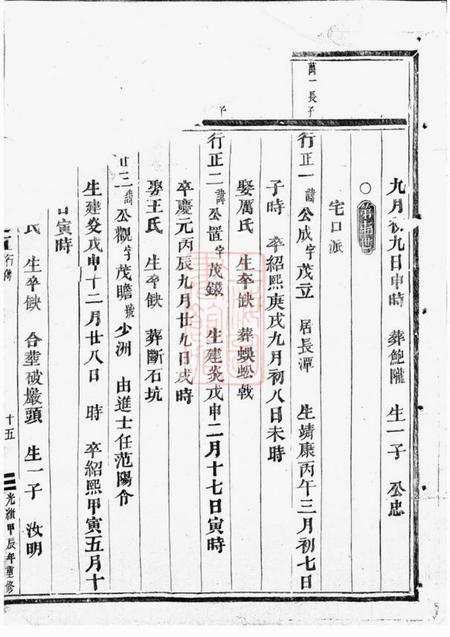 九月初九日申時 葬鮑隴 生一子 公忠
宅口派
萬一長子
行正一 諱公成字茂立 居長潭 生靖康丙午三月初七日
子時 卒紹熙庚戌九月初八日未時
娶厲氏 生卒缺 葬蜈蚣戟
子
行正二 諱公置字茂錢 生建炎戊申二月十七日寅時
卒慶元丙辰九月廿九日戌時
娶王氏 生卒缺 葬斷石坑
正三 諱公觀字茂瞻號少洲 由進士任范陽令
生建炎戊申十二月廿八日 時 卒紹熙甲寅五月十
日寅時
氏 生卒缺 合葬破巖頭 生一子 汝明
行傳
十五
光緒甲辰年重修